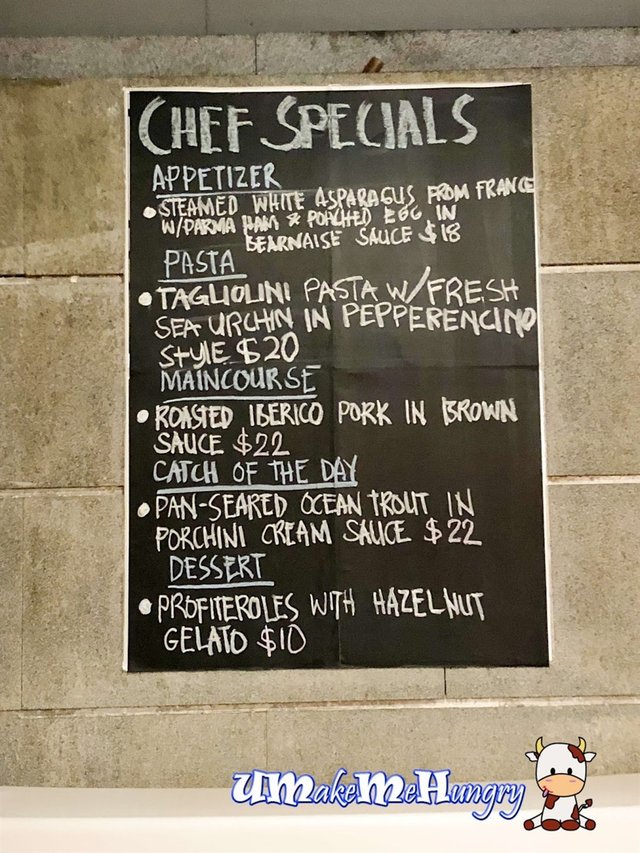 CHEF SPECIALS
APPETIZER
• STEAMED WHITE ASPARAGUS FROM FRANCE
W/PARMA HAM & POACHED EGG IN
BEARNAISE SAUCE $18
PASTA
• TAGLIOLINI PASTA W/FRESH
SEA URCHIN IN PEPPERENCINO
STYLE $20
MAINCOURSE
• ROASTED IBERICO PORK IN BROWN
SAUCE $22
CATCH OF THE DAY
• PAN-SEARED OCEAN TROUT IN
PORCHINI CREAM SAUCE $22
DESSERT
• PROFITEROLES WITH HAZELNUT
GELATO $10
UMakeMeHungry